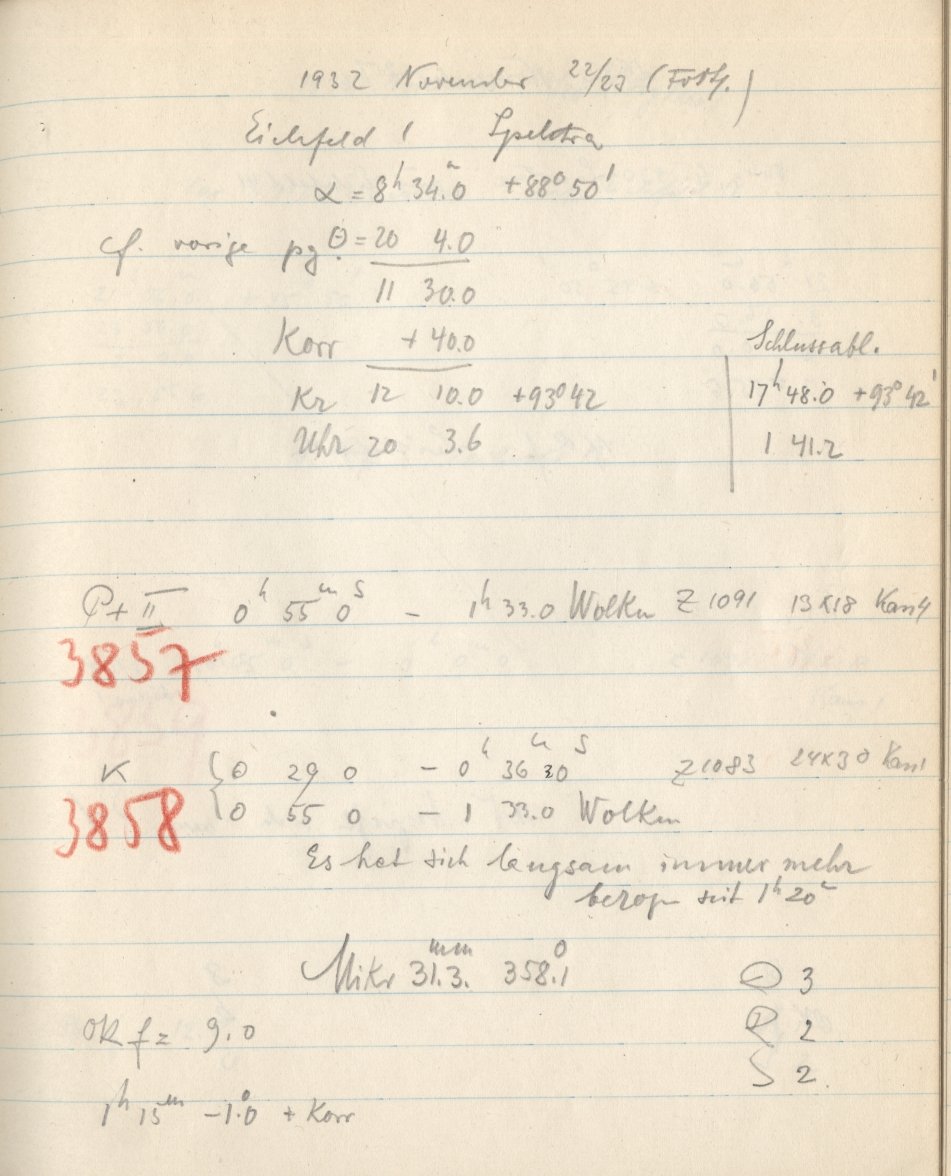 1932 November 22/23 (Forts.)
Eichfeld 1 Spektra
α = 8h 34.m0 +88° 50'
cf. vorige pg. θ = 20 4.0
11 30.0
Korr + 40.0
Schlussabl.
Kr 12 10.0 +93° 42
17h 48.0 +93° 42'
Uhr 20 3.6
1 41.2
P + II 0h 55m 0s – 1h 33.0 Wolken Z 1091 13x18
3857
K { 0 29 0 – 0h 36m 30s Z 1083 24x30
3858 0 55 0 – 1 33.0 Wolken
Es hat sich langsam immer mehr
bezogen seit 1h 20m
Mikr 31.3.mm 358.°1
3
OK f = 9.0
R 2
S 2.
1h 15m –1.°0 + Korr